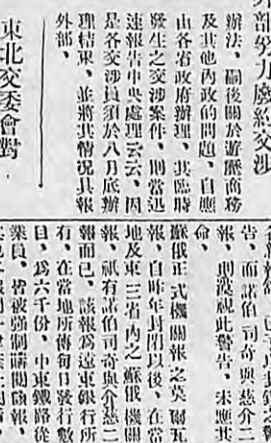 外部努力廢約交涉
辦法、嗣後關於游歷商務
及其他內政的問題、自應
由各省政府辦理、其臨時
發生之交涉案件、則當迅
速報告中央處理云云、因
是各交涉員須於八月底辦
理結束、並將其情況具報
外部、
東北交委會對
告、而諾伯司奇與恭介二
報、則漠視此警告、未應其
命、
蘇俄正式機關報之
報、自昨年封閉以後、在當
地及東三省內之蘇俄機關
報、祇有諾伯司奇與介慈二
報而已、該報爲遠東銀行所
有、在當地所傳每日發行數
目、爲六千份、中東鐵路從
業員、皆被强制購閱